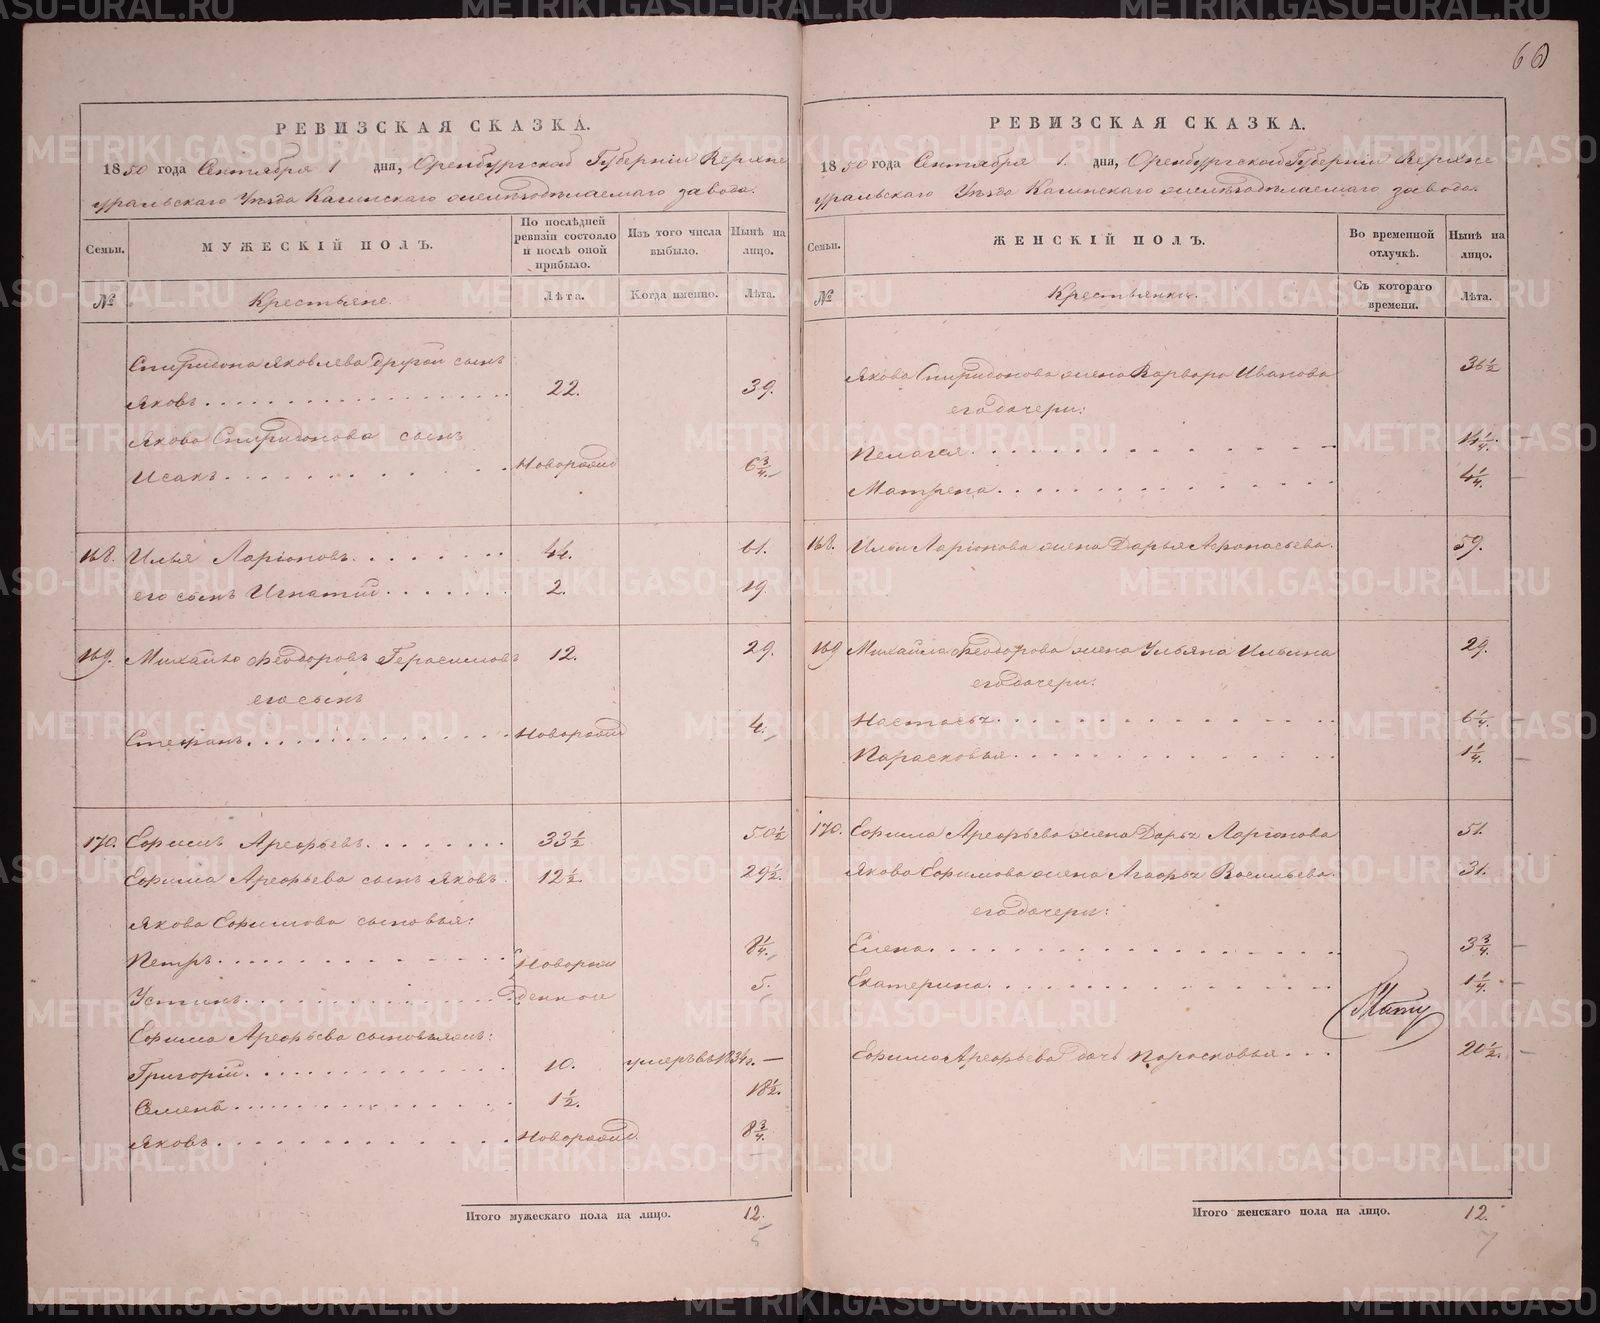 66
РЕВИЗСКАЯ СКАЗКА.
1850 года Сентября 1 дня, Оренбургской Губерніи Верхне
уральскаго Уѣзда Кагинскаго желѣзодѣлаемаго завода.
Семьи.
МУЖЕСКІЙ ПОЛЪ.
По послѣдней ревизіи состояло и послѣ оной прибыло.
Изъ того числа выбыло.
Нынѣ на лицо.
№
Крестьяне.
Лѣта.
Когда именно.
Лѣта.
Спиридона Яковлева другой сынъ
Яковъ 22. 39.
Якова Спиридонова сынъ
Исакъ Новорожд 6 3/4.
168. Илья Ларіоновъ 44. 61.
его сынъ Игнатій 2. 19.
169. Михайло Феодоровъ Герасимовъ 12. 29.
его сынъ
Стефанъ Новорожд 4.
170. Ефимъ Арефьевъ 33 1/2 50 1/2
Ефима Арефьева сынъ Яковъ 12 1/2. 29 1/2.
Якова Ефимова сыновья:
Петръ Новорож 8 1/4.
Устинъ денные 5.
Ефима Арефьева сыновья:
Григорій 10. умеръ въ 183 —
Семенъ 1 1/2. 18 1/2.
Яковъ Новорожд. 8 3/4.
Итого мужескаго пола на лицо. 12.
5
РЕВИЗСКАЯ СКАЗКА.
1850 года Сентября 1. дня, Оренбургской Губерніи Верхне
уральскаго Уѣзда Кагинскаго желѣзодѣлаемаго завода.
Семьи.
ЖЕНСКІЙ ПОЛЪ.
Во временной отлучкѣ.
Нынѣ на лицо.
№
Крестьянки.
Съ котораго времени.
Лѣта.
Якова Спиридонова жена Варвара Иванова 36 1/2
его дочери:
Пелагея 14 1/4.
Матрена 4 1/4.
168. Ильи Ларіонова жена Дарья Афонасьева. 59.
169 Михайла Феодорова жена Ульяна Ильина 29.
его дочери:
Настасья 6 1/4.
Парасковья 1 1/4.
170. Ефима Арефьева жена Дарья Ларіонова 51.
Якова Ефимова жена Агафья Васильева 31.
его дочери:
Елена 3 3/4.
Екатерина 1 1/4.
Ефима Арефьева дочь Парасковья 20 1/2.
Итого женскаго пола на лицо. 12.
7
METRIKI.GASO-URAL.RU